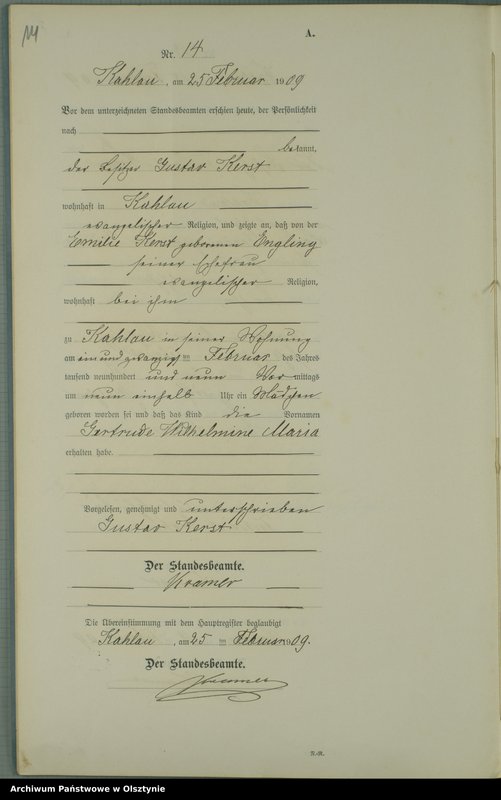 14
A.
Nr. 14
Kahlau, am 25 Februar 1909
Vor dem unterzeichneten Standesbeamten erschien heute, der Persönlichkeit
nach
bekannt,
der Besitzer Gustav Kerst
wohnhaft in Kahlau
evangelischer Religion, und zeigte an, daß von der
Emilie Kerst geborenen Engling
seiner Ehefrau
evangelischer Religion,
wohnhaft bei ihm
zu Kahlau in seiner Wohnung
am einundzwanzigsten Februar des Jahres
tausend neunhundert und neun Vormittags
um neun einhalb Uhr ein Mädchen
geboren worden sei und daß das Kind die Vornamen
Gertrude Wilhelmine Maria
erhalten habe.
Vorgelesen, genehmigt und unterschrieben
Gustav Kerst
Der Standesbeamte.
Kramer
Die Übereinstimmung mit dem Hauptregister beglaubigt
Kahlau, am 25 ten Februar 1909.
Der Standesbeamte.
Kramer
N.-R.
Archiwum Państwowe w Olsztynie